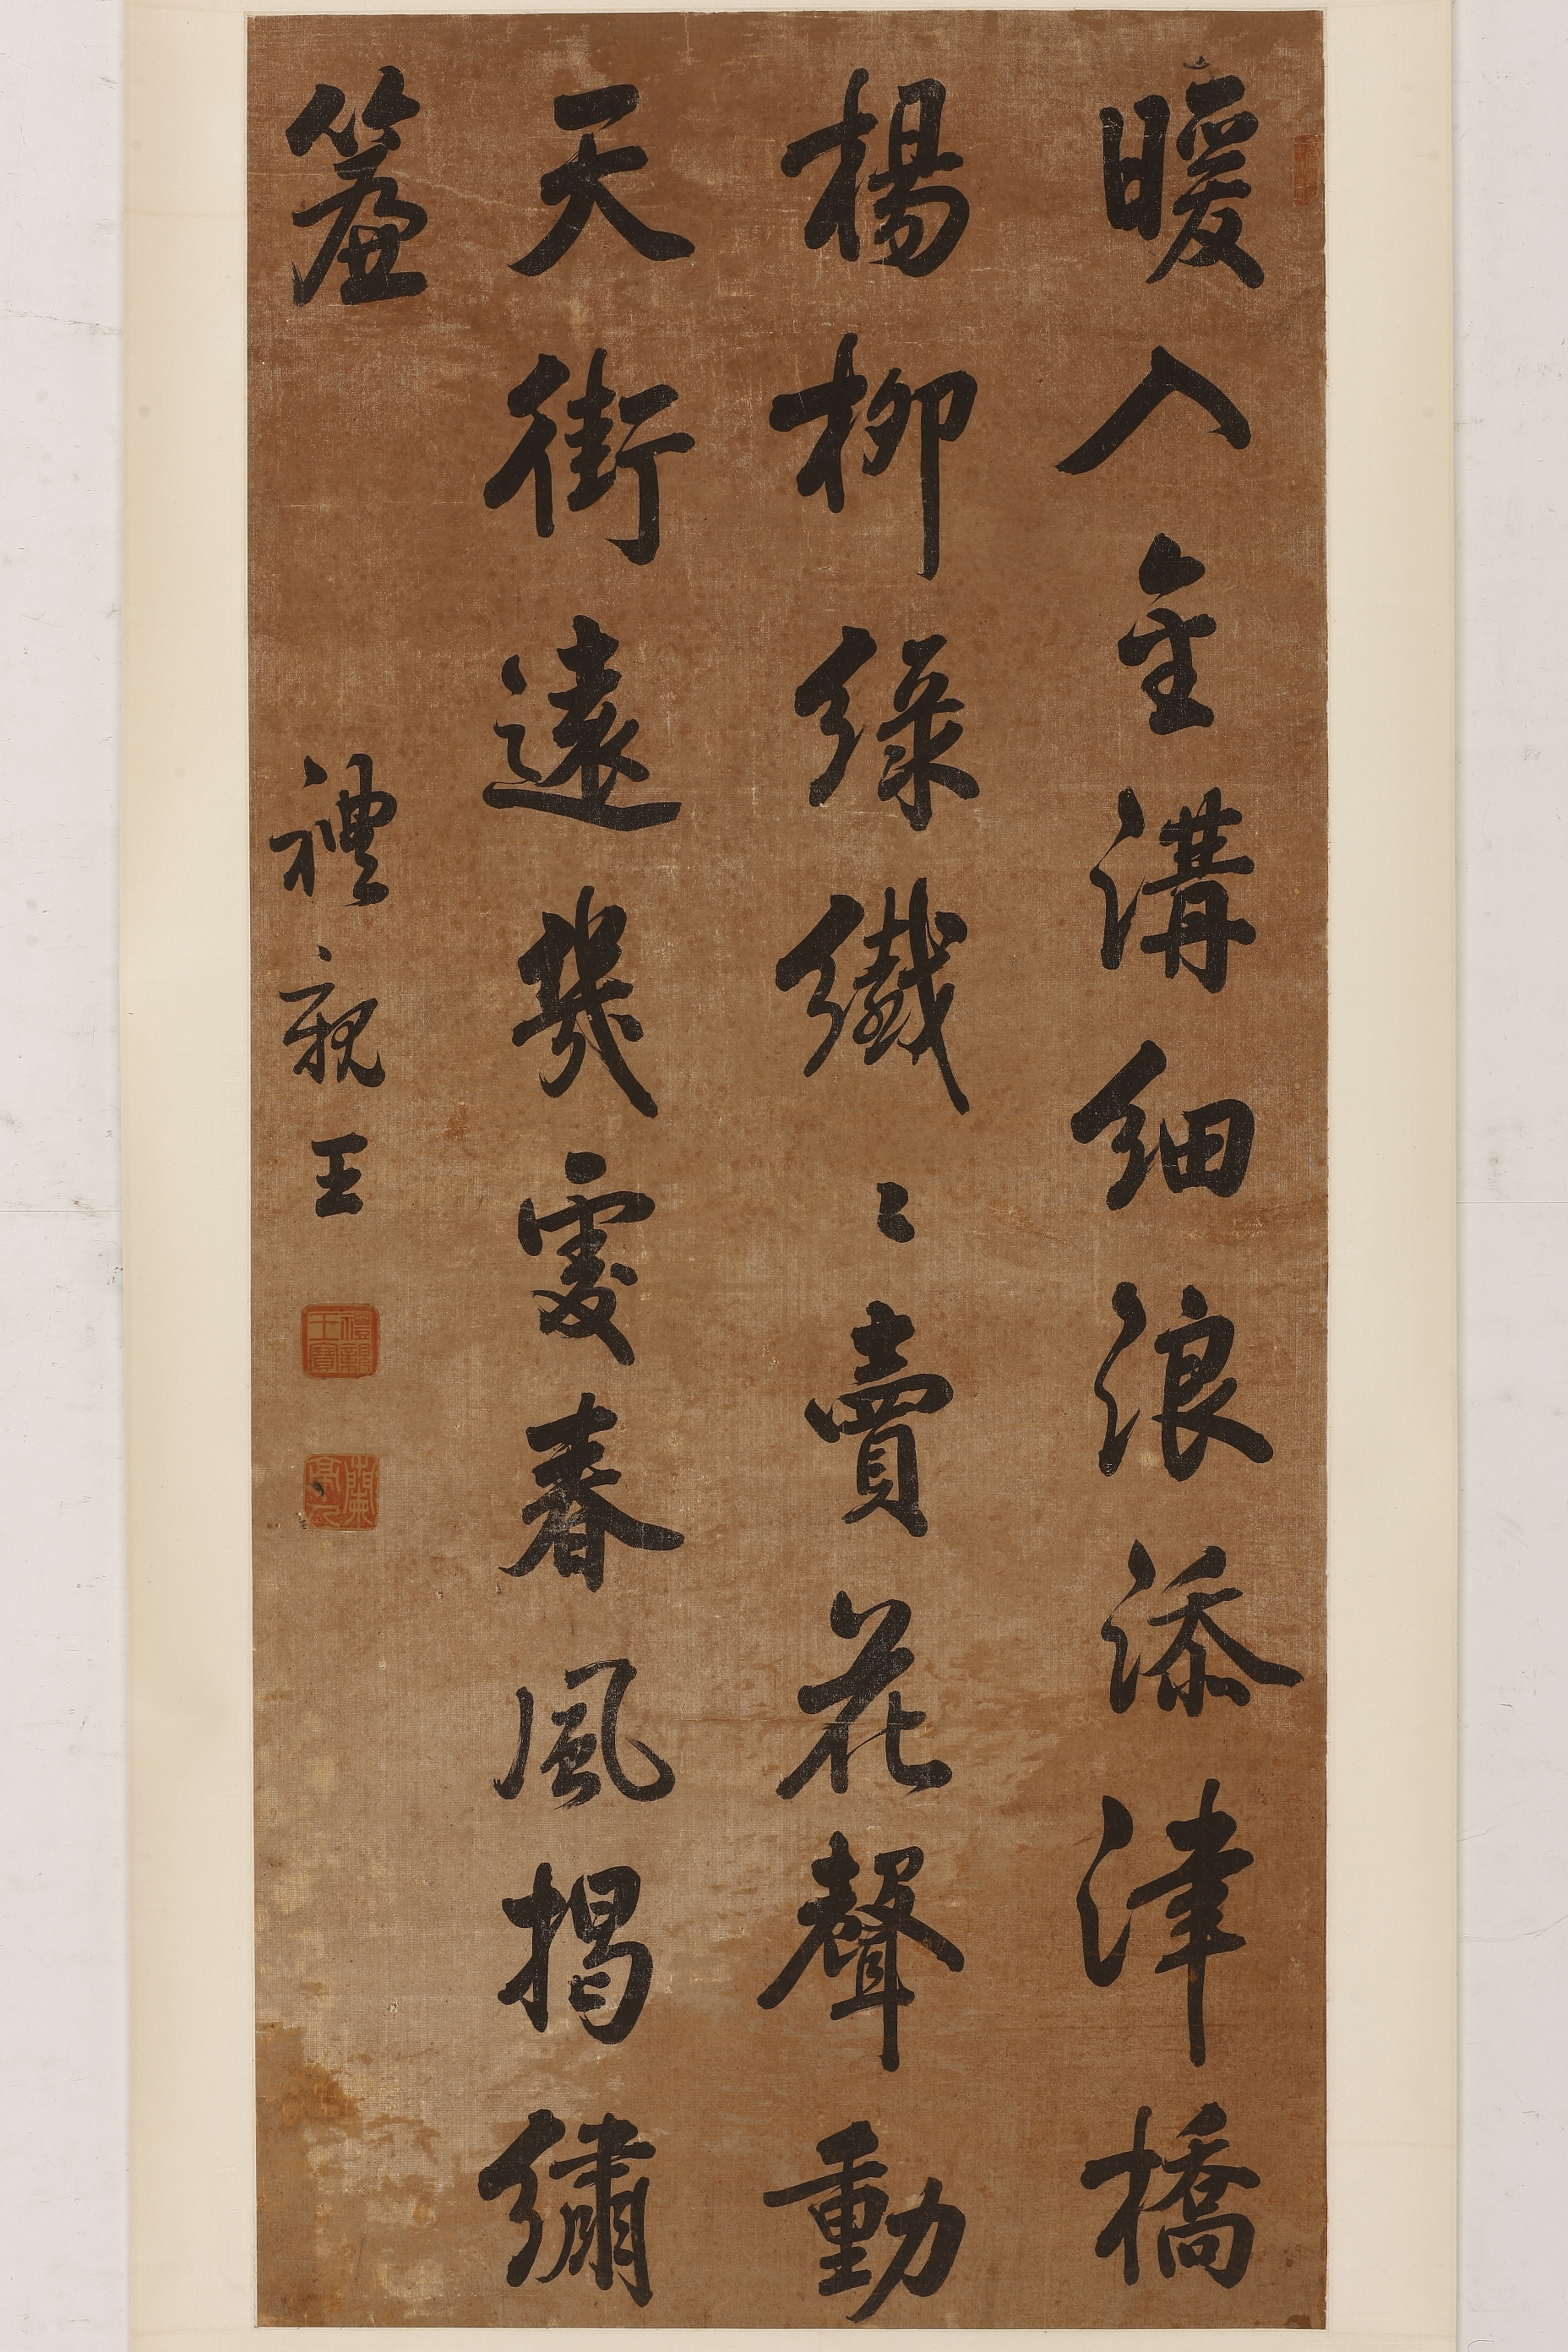 暖入金溝細浪添津橋
楊柳綠纖〻賣花聲動
天街遠幾處春風揭繡
簾
禮親王
禮親王寶
蘭亭